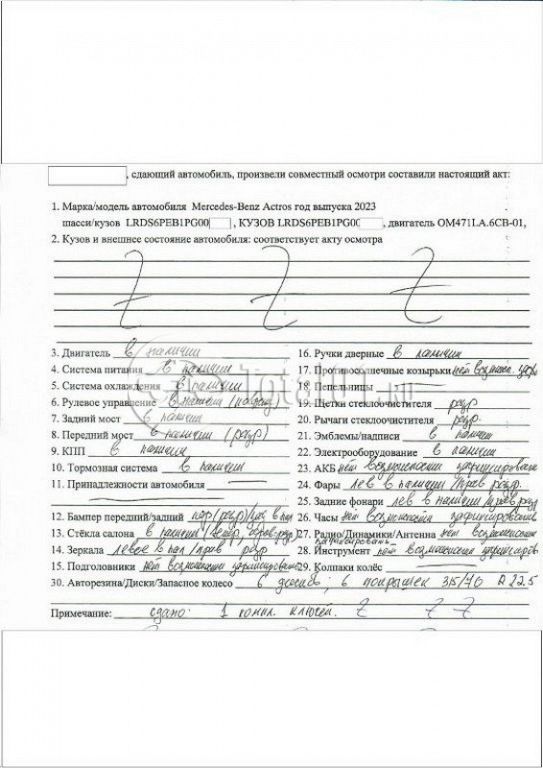 , сдающий автомобиль, произвели совместный осмотри составили настоящий акт:
1. Марка/модель автомобиля Mercedes-Benz Actros год выпуска 2023
шасси/кузов LRDS6PEB1PG00 , КУЗОВ LRDS6PEB1PG0 , двигатель OM471LA.6CB-01,
2. Кузов и внешнее состояние автомобиля: соответствует акту осмотра
3. Двигатель в наличии
4. Система питания в наличии
5. Система охлаждения в наличии
6. Рулевое управление в наличии
7. Задний мост в наличии
8. Передний мост в наличии (разр)
9. КПП в наличии
10. Тормозная система в наличии
11. Принадлежности автомобиля
12. Бампер передний/задний
13. Стёкла салона в наличии
14. Зеркала левое в нал / прав разр
15. Подголовники нет возможности
16. Ручки дверные в наличии
17. Противосолнечные козырьки нет
18. Пепельницы
19. Щетки стеклоочистителя разр
20. Рычаги стеклоочистителя разр.
21. Эмблемы/надписи в наличии
22. Электрооборудование в наличии
23. АКБ нет возможности
24. Фары лев в наличии / прав разр.
25. Задние фонари лев в наличии / прав разр
26. Часы нет возможности
27. Радио/Динамики/Антенна нет
28. Инструмент нет возможности
29. Колпаки колёс
30. Авторезина/Диски/Запасное колесо 6 дисков; 6 покрышек 315/70 R 22.5
Примечание: сдано: 1 компл. ключей.